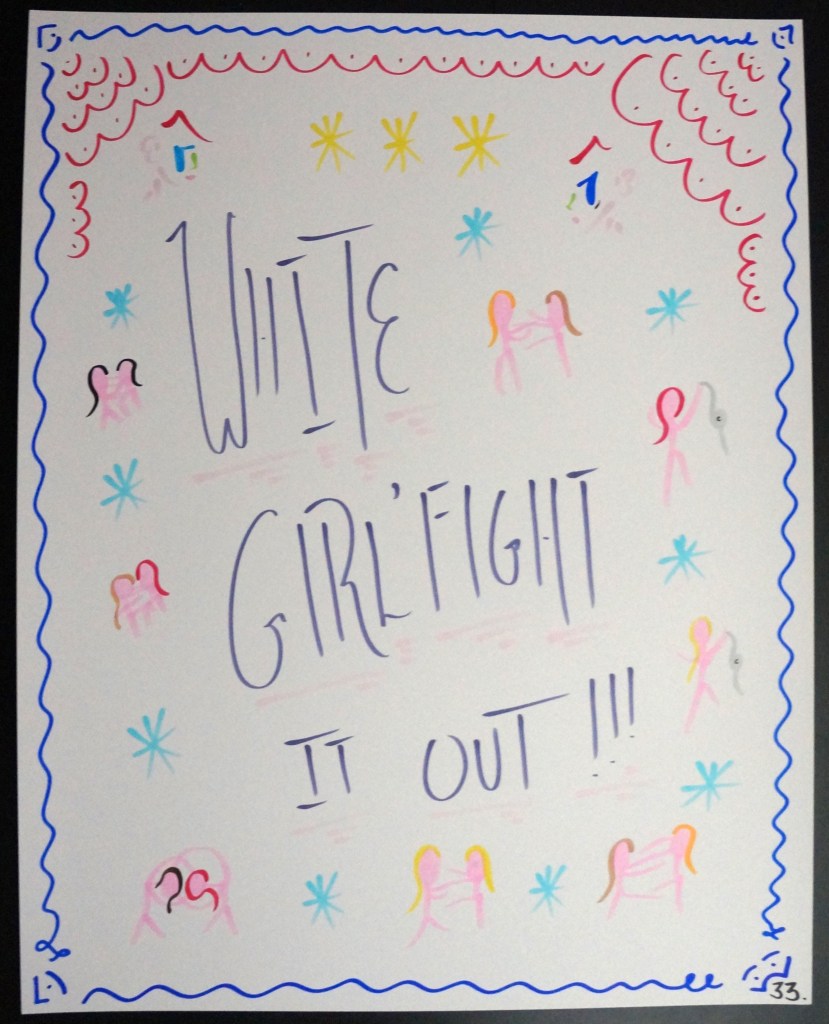 WHITE
GIRL'FIGHT
IT OUT!!!
33.